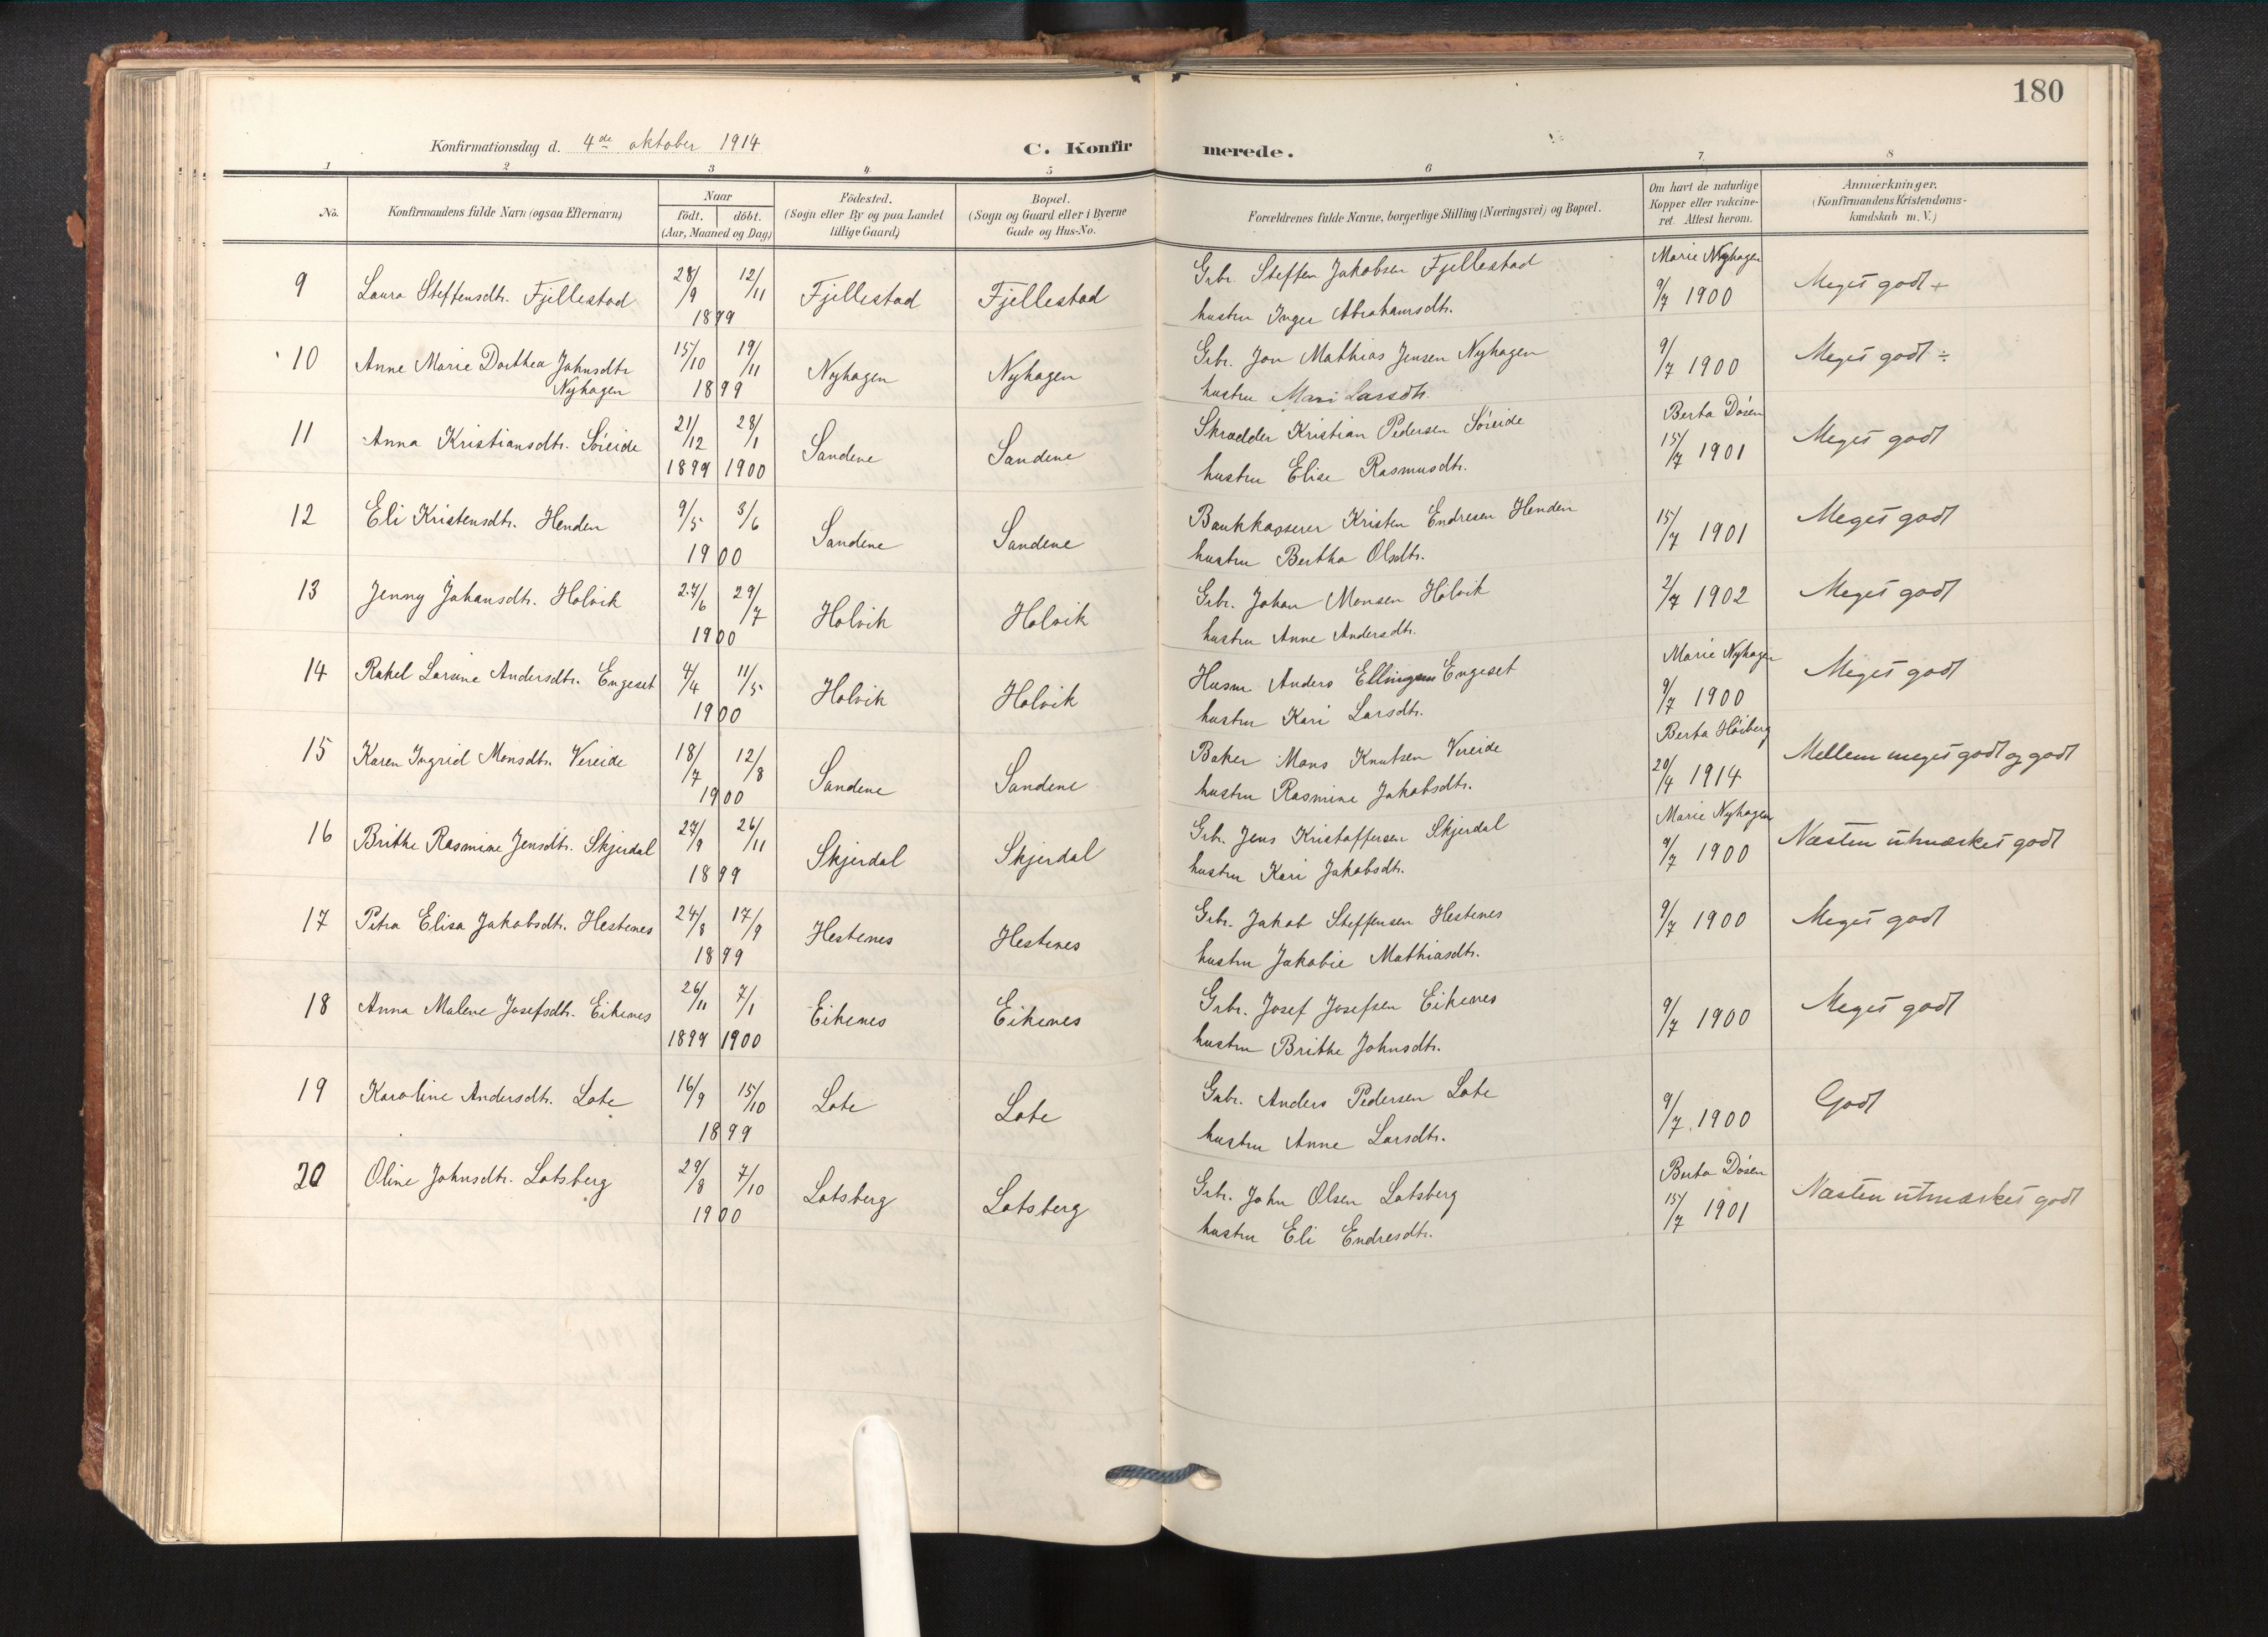 180
Konfirmationsdag d. 4de oktober 1914
C. Konfirmerede.
1 2 3 4 5 6 7 8
No.
Konfirmandens fulde Navn (ogsaa Efternavn)
Naar
födt. döbt.
(Aar, Maaned og Dag)
Födested.
(Sogn eller By og paa Landet
tillige Gaard)
Bopæl.
(Sogn og Gaard eller i Byerne
Gade og Hus-No.
Forældrenes fulde Navne, borgerlige Stilling (Næringsvei) og Bopæl.
Om havt de naturlige
Kopper eller vakcine-
ret. Attest herom.
Anmærkninger.
(Konfirmandens Kristendoms-
kundskab m. V.)
9 Laura Steffensdtr. Fjellestad 28/9 12/11 1899 Fjellestad Fjellestad
Grbr. Steffen Jakobsen Fjellestad
hustru Inger Abrahamsdtr.
Marie Nyhagen
9/7 1900
Meget godt +
10 Anne Marie Dorthea Johnsdtr
Nyhagen
15/10 19/11 1899 Nyhagen Nyhagen
Grbr. Jon Mathias Jensen Nyhagen
hustru Mari Larsdtr.
9/7 1900
Meget godt ÷
11 Anna Kristiansdtr. Söreide 21/12 28/1
1899 1900 Sandene Sandene
Skrædder Kristian Pedersen Söreide
hustru Elise Rasmusdtr.
Berta Dösen
15/7 1901
Meget godt
12 Eli Kristensdtr. Henden 9/5 3/6 1900 Sandene Sandene
Bankkasserer Kristen Endresen Henden
hustru Bertha Olsdtr.
15/7 1901
Meget godt
13 Jenny Johansdtr. Holvik 27/6 29/7 1900 Holvik Holvik
Grbr. Johan Monsen Holvik
hustru Anne Andersdtr.
2/7 1902
Meget godt
14 Rakel Larsine Andersdtr. Engeset 4/4 11/5 1900 Holvik Holvik
Husm Anders Ellingsen Engeset
hustru Kari Larsdtr.
Marie Nyhagen
9/7 1900
Meget godt
15 Karen Ingrid Monsdtr. Vereide 18/7 12/8 1900 Sandene Sandene
Baker Mons Knutsen Vereide
hustru Rasmine Jakobsdtr.
Berta Höiberg
20/4 1914
Mellem meget godt og godt
16 Brithe Rasmine Jensdtr. Skjerdal 27/9 26/11 1899 Skjerdal Skjerdal
Grb. Jens Kristoffersen Skjerdal
hustru Kari Jakobsdtr.
Marie Nyhagen
9/7 1900
Næsten utmærket godt
17 Petra Elisa Jakobsdtr. Hestenes 24/8 17/9 1899 Hestenes Hestenes
Grbr. Jakob Steffensen Hestenes
hustru Jakobie Mathiasdtr.
9/7 1900
Meget godt
18 Anna Malene Josefsdtr. Eikenes 26/11 7/1
1899 1900 Eikenes Eikenes
Grbr. Josef Josefsen Eikenes
hustru Brithe Johnsdtr.
9/7 1900
Meget godt
19 Karoline Andersdtr. Lote 16/9 15/10 1899 Lote Lote
Grbr. Anders Pedersen Lote
hustru Anne Larsdtr.
9/7 1900
Godt
20 Oline Johnsdtr. Lotsberg 29/8 7/10 1900 Lotsberg Lotsberg
Grbr. John Olsen Lotsberg
hustru Eli Endresdtr.
Berta Dösen
15/7 1901
Næsten utmærket godt